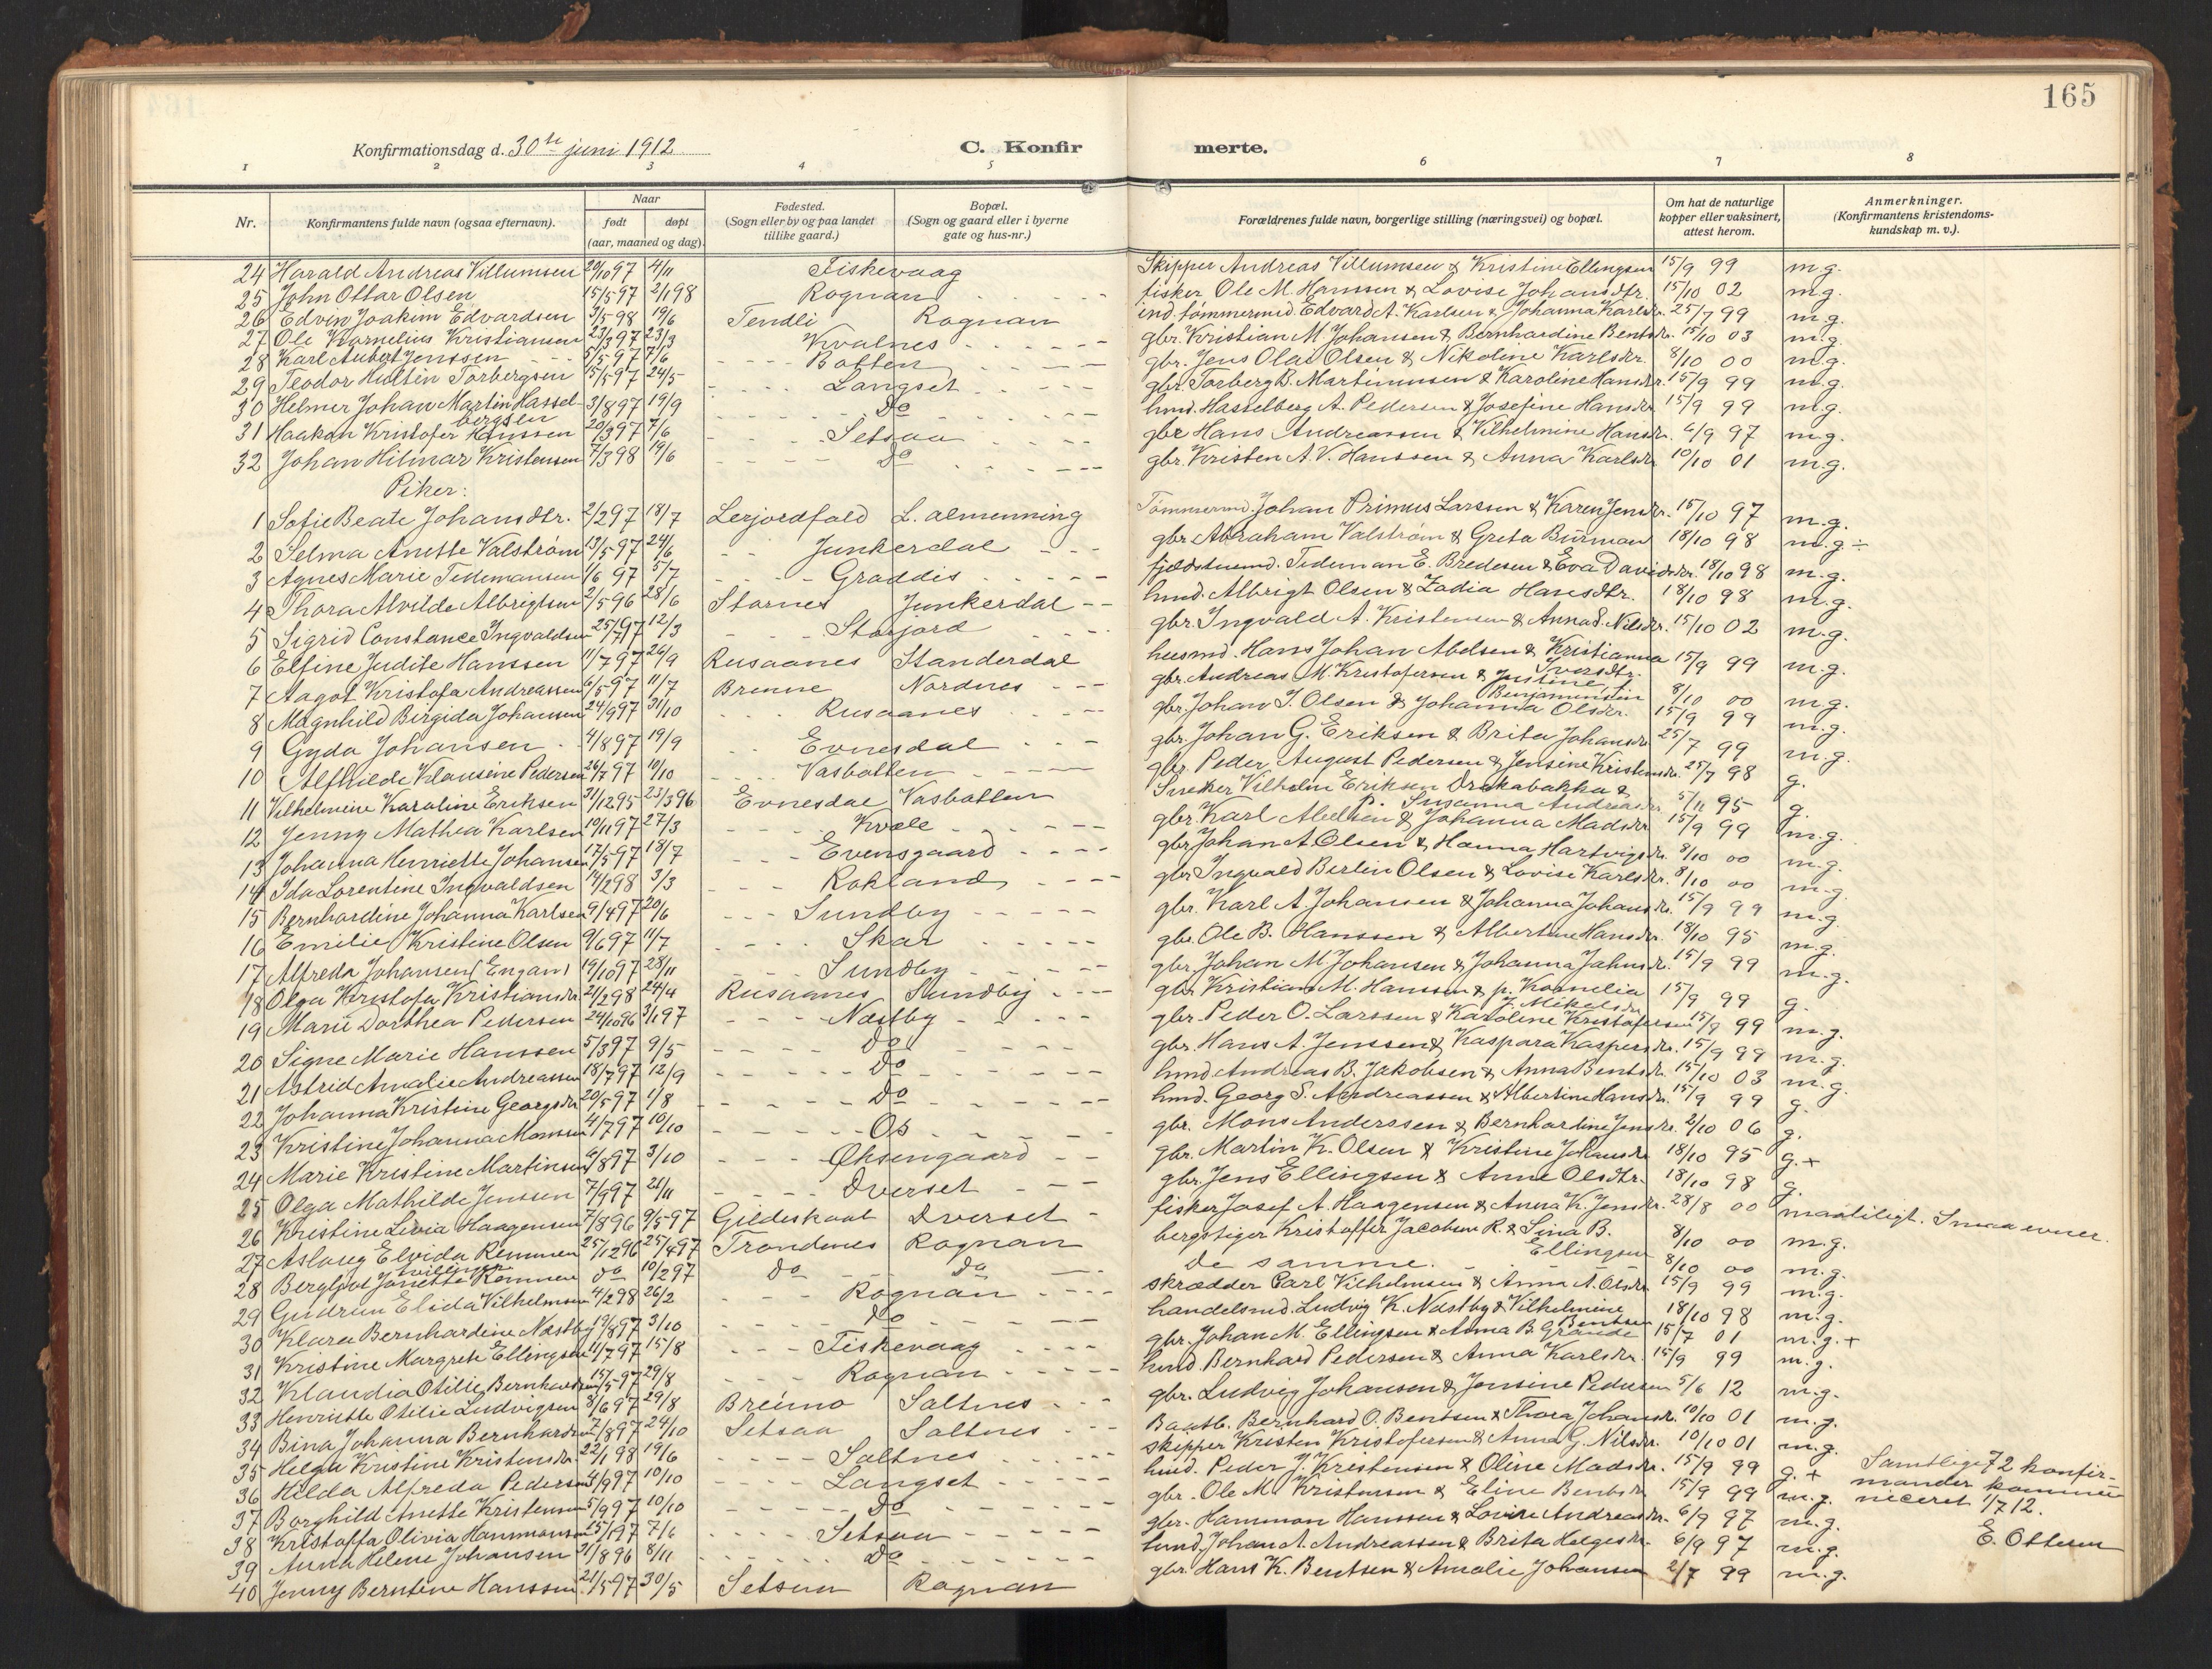 165
Konfirmationsdag d. 30te juni 1912
C. Konfirmerte.
1 2 3 4 5 6 7 8
Nr. Konfirmantens fulde navn (ogsaa efternavn). Naar født døpt (aar, maaned og dag). Fødested. (Sogn eller by og paa landet tillike gaard.) Bopæl. (Sogn og gaard eller i byerne gate og hus-nr.) Forældrenes fulde navn, borgerlige stilling (næringsvei) og bopæl. Om hat de naturlige kopper eller vaksinert, attest herom. Anmerkninger. (Konfirmantens kristendomskundskap m. v.).
24 Harald Andreas Villumsen 20/10 97 4/11 Fiskevaag Skipper Andreas Villumsen & Kristine Ellingsen 15/9 99 m.g.
25 John Ottar Olsen 15/5 97 2/1 98 Rognan fisker Ole M. Hanssen & Lovise Johansdtr. 15/10 02 m.g.
26 Edvin Joakim Edvardsen 3/5 98 19/6 Tendli Rognan ind. tømmermd. Edvard A. Karlsen & Johanna Karlsdr. 25/7 99 m.g.
27 Ole Kornelius Kristiansen 23/3 97 23/3 Kvalnes gbr. Kristian M. Johansen & Bernhardine Bentsdr. 15/10 03 m.g.
28 Karl Aubert Jenssen 5/5 97 7/6 Botten gbr. Jens Olai Olsen & Nikoline Karlsdr. 8/10 00 m.g.
29 Teodor Hultin Torbergsen 15/5 97 24/5 Langset gbr. Torberg B. Martinussen & Karoline Hansdr. 15/9 99 m.g.
30 Helmer Johan Martin Hasselbergsen 3/8 97 19/9 Do hmd. Hasselberg A. Pedersen & Josefine Hansdr. 15/9 99 m.g.
31 Haakon Kristofer Hanssen 20/3 97 7/6 Setsaa gbr. Hans Andreassen & Vilhelmine Hansdr. 6/9 97 m.g.
32 Johan Hilmar Kristensen 7/3 98 19/6 Do gbr. Kristen A. V. Hanssen & Anna Karlsdr. 10/10 01 m.g.
Piker:
1 Sofie Beate Johansdtr. 2/2 97 18/7 Lerjordfald L. almenning Tømmermd. Johan Primus Larssen & Karen Jensdr. 15/10 97 m.g.
2 Selma Anette Valstrøm 13/5 97 24/6 Junkerdal gbr. Abraham Valstrøm & Greta Burman 18/10 98 m.g ÷
3 Agnes Marie Tidemansen 1/6 97 5/7 Graddis fjeldstuemd. Tideman E. Bredesen & Eva Davidsdr. 18/10 98 m.g.
4 Thora Alvilde Albrigtsen 2/5 96 28/6 Stornes Junkerdal hmd. Albrigt Olsen & Zadia Hansdtr. 18/10 98 m.g.
5 Sigrid Constance Ingvaldsen 25/1 97 12/3 Storjord gbr. Ingvald A. Kristensen & Anna S. Nilsdr. 15/10 02 m.g.
6 Elfine Judite Hanssen 11/7 97 26/9 Rusaanes Standerdal husmd. Hans Johan Abelsen & Kristianna Iversdtr. 15/9 99 m.g.
7 Aagot Kristofa Andreassen 6/5 97 11/7 Brenne Nordnes gbr. Andreas M. Kristofersen & Justine Benjaminsen 8/10 00 m.g.
8 Magnhild Birgida Johansen 24/9 97 31/10 Rusaanes gbr. Johan J. Olsen & Johanna Olsdr. 15/9 99 m.g.
9 Gyda Johansen 4/8 97 19/9 Evnesdal gbr. Johan G. Eriksen & Brita Johansdr. 25/7 99 m.g.
10 Alfhilde Klausine Pedersen 26/7 97 10/10 Vasbotten gbr. Peder August Pedersen & Jensine Kristensdr. 25/7 98 g.
11 Vilhelmine Karoline Eriksen 31/12 95 23/3 96 Evnesdal Vasbotten Snekker Vilhelm Eriksen Drakabakka & p. Susanna Andreasdr. 5/11 95 g.
12 Jenny Mathea Karlsen 10/11 97 27/3 Kvæle gbr. Karl Abelsen & Johanna Madsdr. 15/9 99 m.g.
13 Johanna Henriette Johansen 17/5 97 18/7 Evensgaard gbr. Johan A. Olsen & Hanna Hartvigsdr. 8/10 00 m.g.
14 Ida Lorentine Ingvaldsen 14/2 98 3/3 Rokland gbr. Ingvald Berlin Olsen & Lovise Karlsdr. 8/10 00 m.g.
15 Bernhardine Johanna Karlsen 9/4 97 20/6 Sundby gbr. Karl A. Johansen & Johanna Johansdr. 15/9 99 m.g.
16 Emilie Kristine Olsen 9/6 97 11/7 Skar gbr. Ole B. Hanssen & Albertine Hansdr. 18/10 95 m.g.
17 Alfreda Johansen (Engan) 19/10 97 28/11 Sundby gbr. Johan M. Johansen & Johanna Jahnsdr. 15/9 99 m.g.
18 Olga Kristofa Kristiansdr. 21/2 98 24/4 Rusaanes Sundby gbr. Kristian M. Hanssen & p. Kornelia J. Mikelsdr. 15/9 99 g.
19 Marie Dorthea Pedersen 24/10 96 3/1 97 Næstby gbr. Peder O. Larssen & Karoline Kristofersen 15/9 99 m.g.
20 Signe Marie Hanssen 5/3 97 9/5 Do gbr. Hans A. Jenssen & Kaspara Kaspersdr. 15/9 99 m.g.
21 Astrid Amalie Andreassen 18/7 97 12/9 Do hmd. Andreas B. Jakobsen & Anna Bentsdr. 15/10 03 m.g.
22 Johanna Kristine Georgsdr. 20/5 97 1/8 Do hmd. Georg S. Andreassen & Albertine Hansdr. 15/9 99 g.
23 Kristine Johanna Monssen 4/7 97 10/10 Os gbr. Mons Anderssen & Bernhardine Jensdr. 2/10 06 g.
24 Marie Kristine Martinsen 6/8 97 3/10 Øksengaard gbr. Martin K. Olsen & Kristine Johansdr. 18/10 95 g.+
25 Olga Mathilde Jenssen 7/9 97 21/11 Dverset gbr. Jens Ellingsen & Anne Olsdtr. 18/10 98 g.
26 Kristine Livia Haagensen 7/8 96 9/5 97 Gildeskaal Dverset fisker Josef A. Haagensen & Anna K. Jensdr. 28/8 00 maatiligt. Smaa evner.
27 Aslaug Elvida Remmen 25/12 96 25/4 97 Trondenes Rognan bergstiger Kristoffer Jacobsen R. & Lina B. Ellingsen 8/10 00 m.g.
28 Bergljot Janette Remmen tvillinger do 10/2 97 do do de samme. 8/10 00 m.g.
29 Gudrun Elida Vilhelmsen 4/2 98 26/2 Rognan skrædder Carl Vilhelmsen & Anna A. Olsdr. 15/9 99 m.g.
30 Klara Bernhardine Næstby 19/8 97 3/10 Do handelsmd. Ludvig K. Næstby & Vilhelmine Bentsen 18/10 98 m.g.
31 Kristine Margrete Ellingsen 11/7 97 15/8 Fiskevaag gbr. Johan M. Ellingsen & Anna B. Grande 15/7 01 m.g.+
32 Klaudia Otilie Bernhardsen 15/5 97 29/8 Rognan hmd. Bernhard Pedersen & Anna Karlsdr. 15/9 99 m.g.
33 Henriette Otilie Ludvigsen 3/6 97 29/8 Breimo Saltnes gbr. Ludvig Johansen & Jensine Pedersen 5/6 12 m.g.
34 Bina Johanna Bernhardsen 7/8 97 24/10 Setsaa Saltnes Baatb. Bernhard O. Bentsen & Thora Johansdr. 10/10 01 m.g.
35 Helga Kristine Kristensdr. 22/1 98 19/6 Saltnes skipper Kristen Kristofersen & Anna G. Nilsdr. 10/10 01 m.g.
36 Hilda Alfreda Pedersen 4/9 97 10/10 Langset hmd. Peder J. Kristensen & Oline Madsdr. 15/9 99 g.+
37 Borghild Anette Kristensen 5/9 97 10/10 Do gbr. Ole M. Kristensen & Eline Bentsdr. 15/9 99 m.g.
38 Kristoffa Olivia Hammonsen 15/1 97 7/6 Setsaa gbr. Hammon Hanssen & Lovise Andreasdr. 6/9 97 m.g.
39 Anna Helene Johansen 31/8 96 8/11 Do hmd. Johan A. Andreassen & Brita Helgesdr. 6/9 97 m.g.
40 Jenny Berntine Hanssen 21/5 97 30/5 Setsaa Rognan gbr. Hans K. Bentsen & Amalie Johansen 2/7 99 m.g.
Samtlige 72 konfir-
mander kommu
niceret 1/7 12.
E. Ottesen